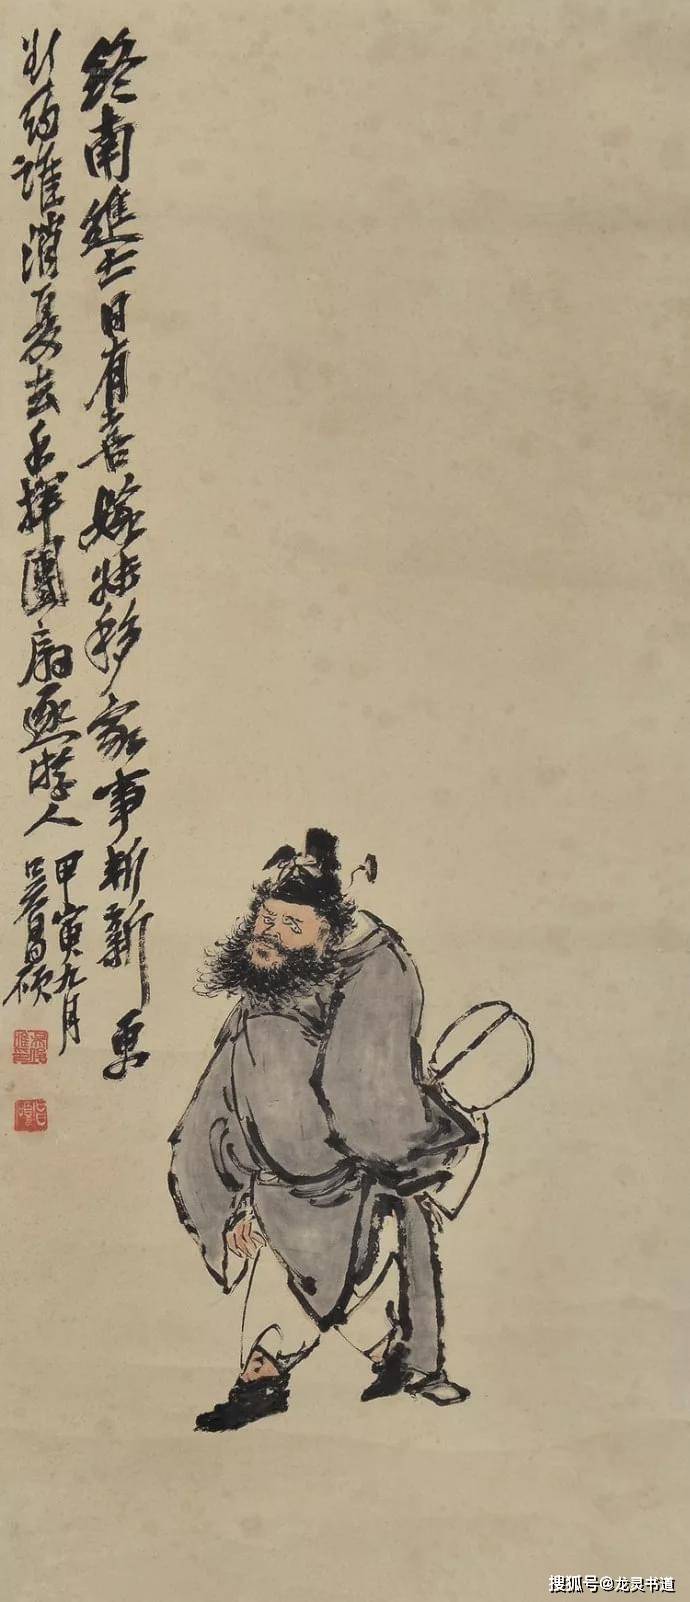 終南進士日有喜嫁妹移家事斬新更
約誰消夏去手揮團扇逐游人
甲寅九月
吳昌碩
搜狐号@龙灵书道